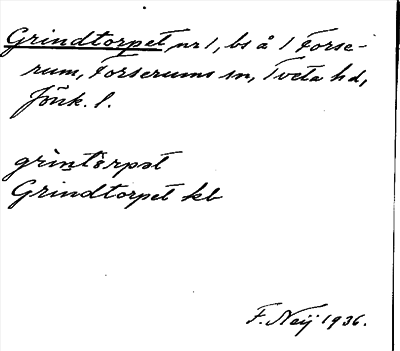 Grindtorpet nr 1, bs å 1 Forse-
rum, Forserums sn, Tveta hd,
Jönk. l.
grìntèrpət
Grindtorpet kb
F. Neij 1936.